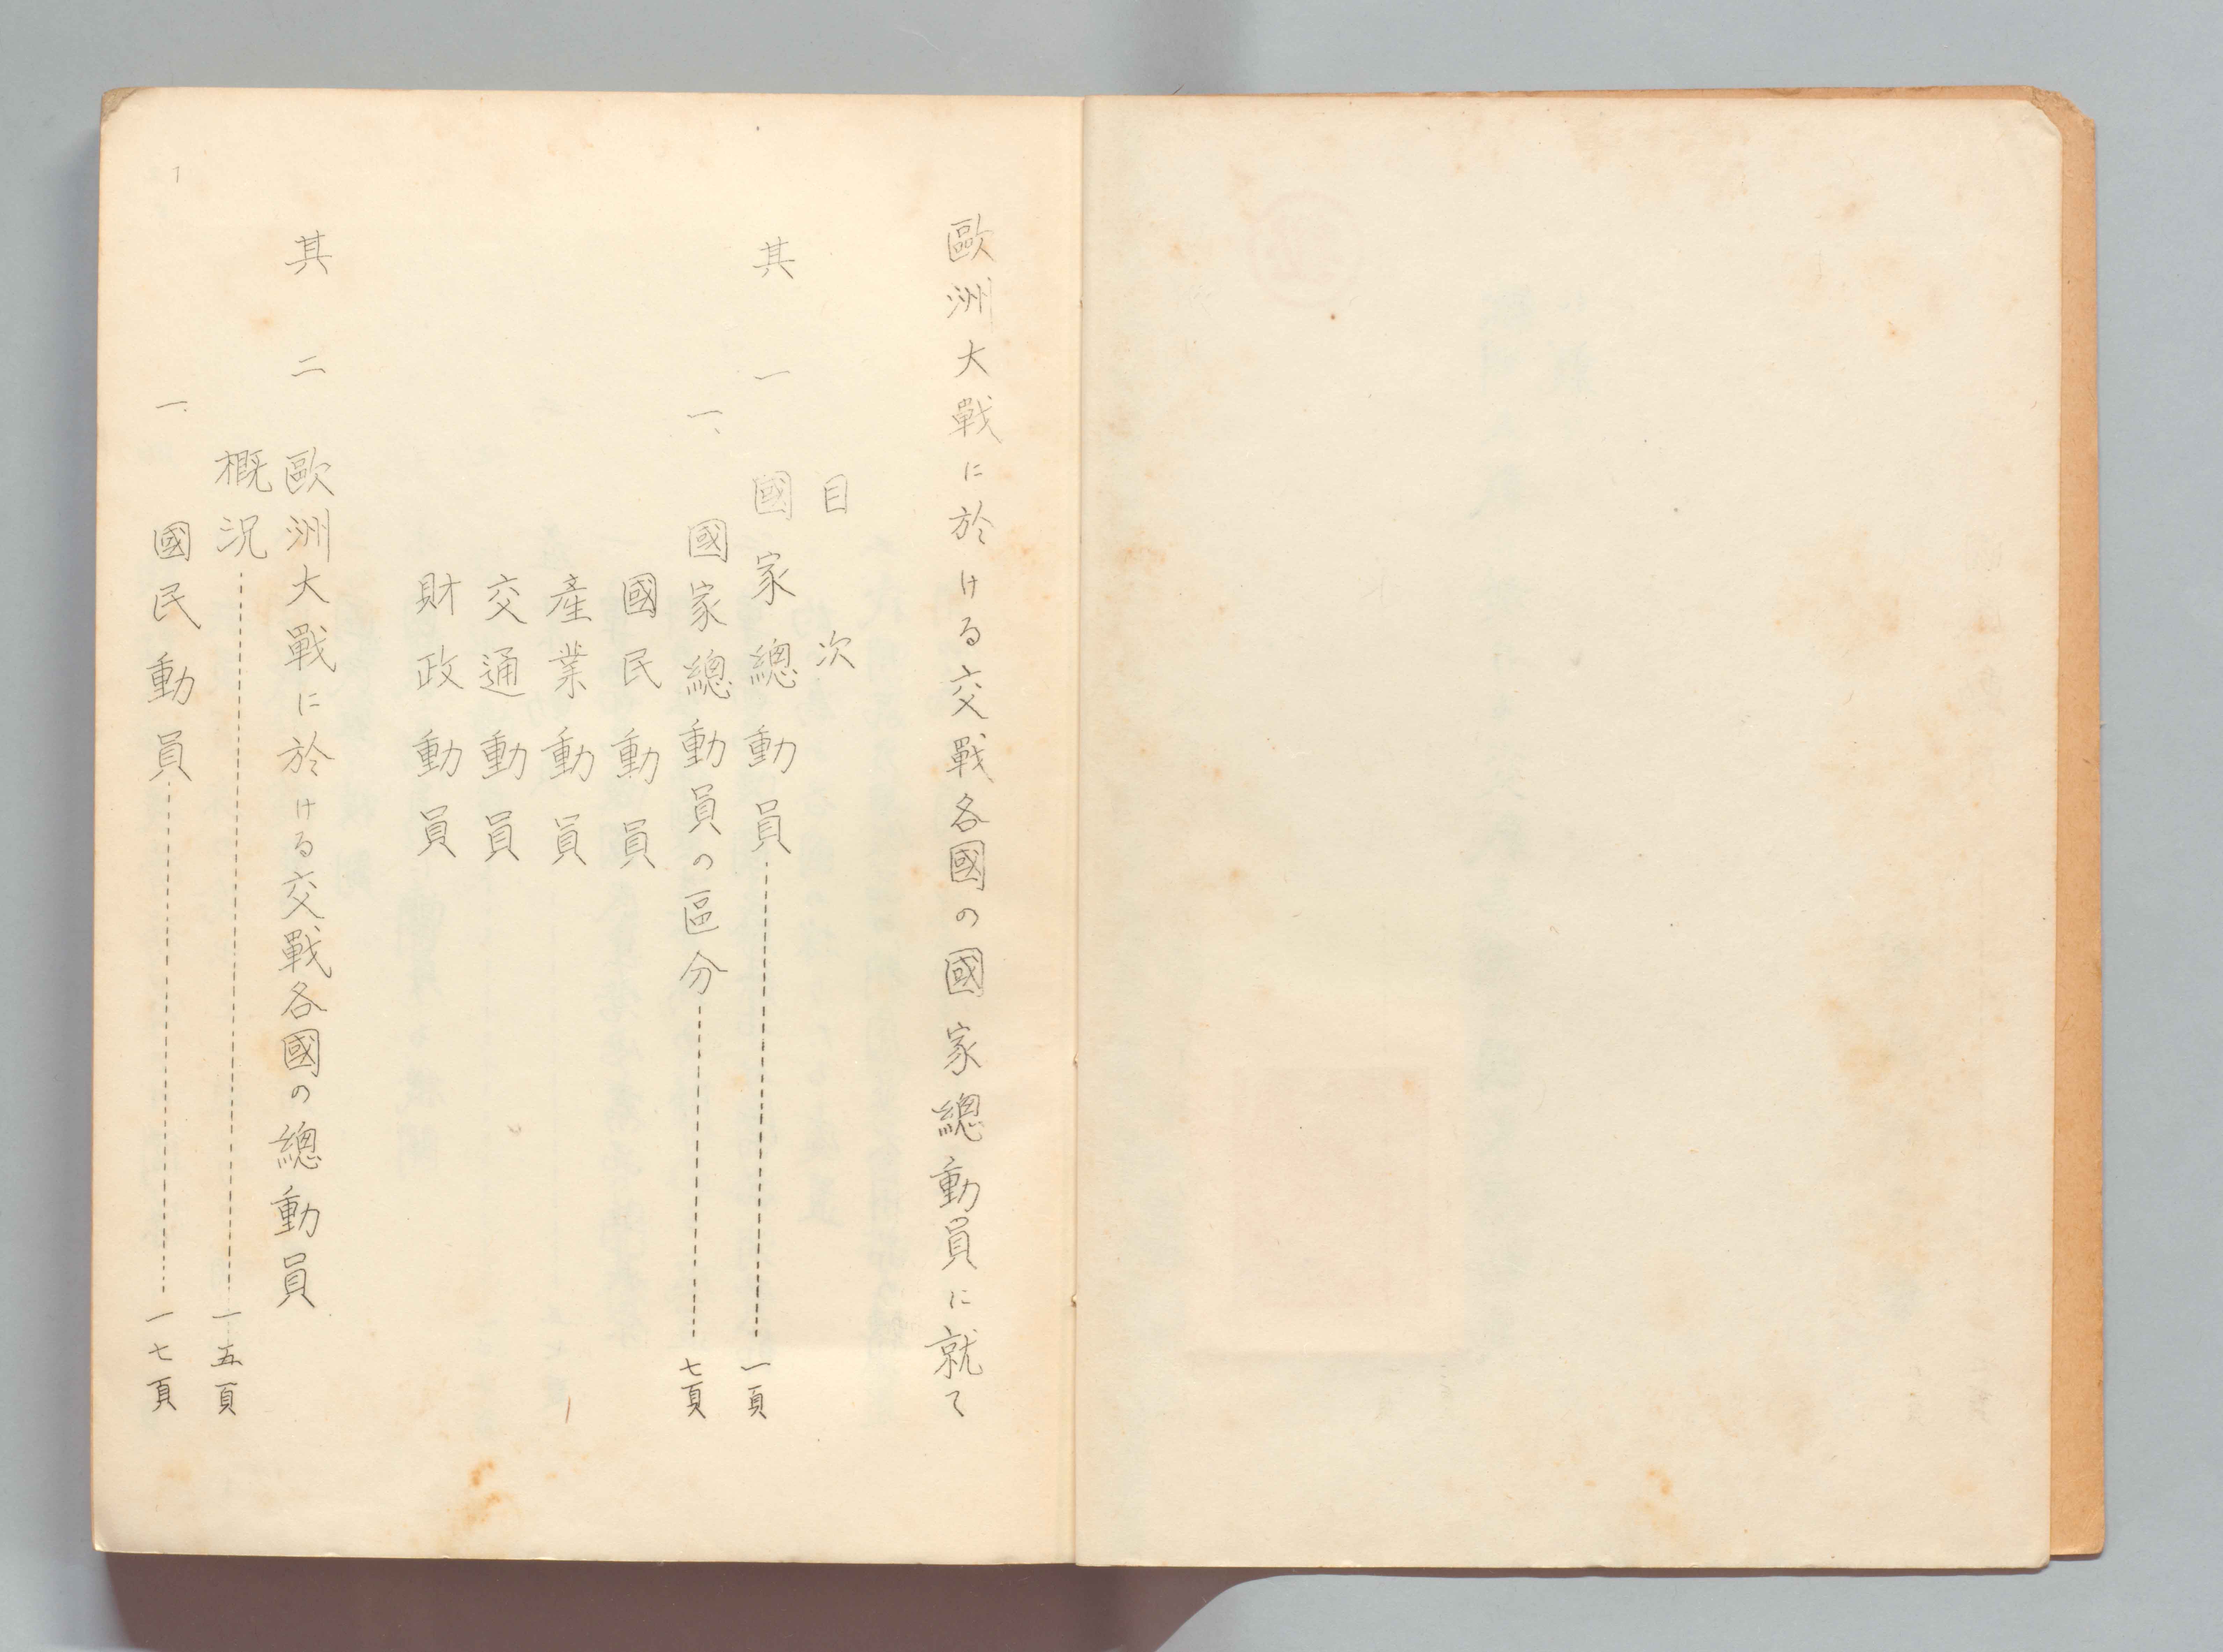 歐洲大戰に於ける交戰各國の國家總動員に就て
目次
其一 國家總動員 一頁
一、國家總動員の區分 七頁
國民動員
產業動員
交通動員
財政動員
其二 歐洲大戰に於ける交戰各國の總動員
概況 一五頁
一、國民動員 一七頁
1